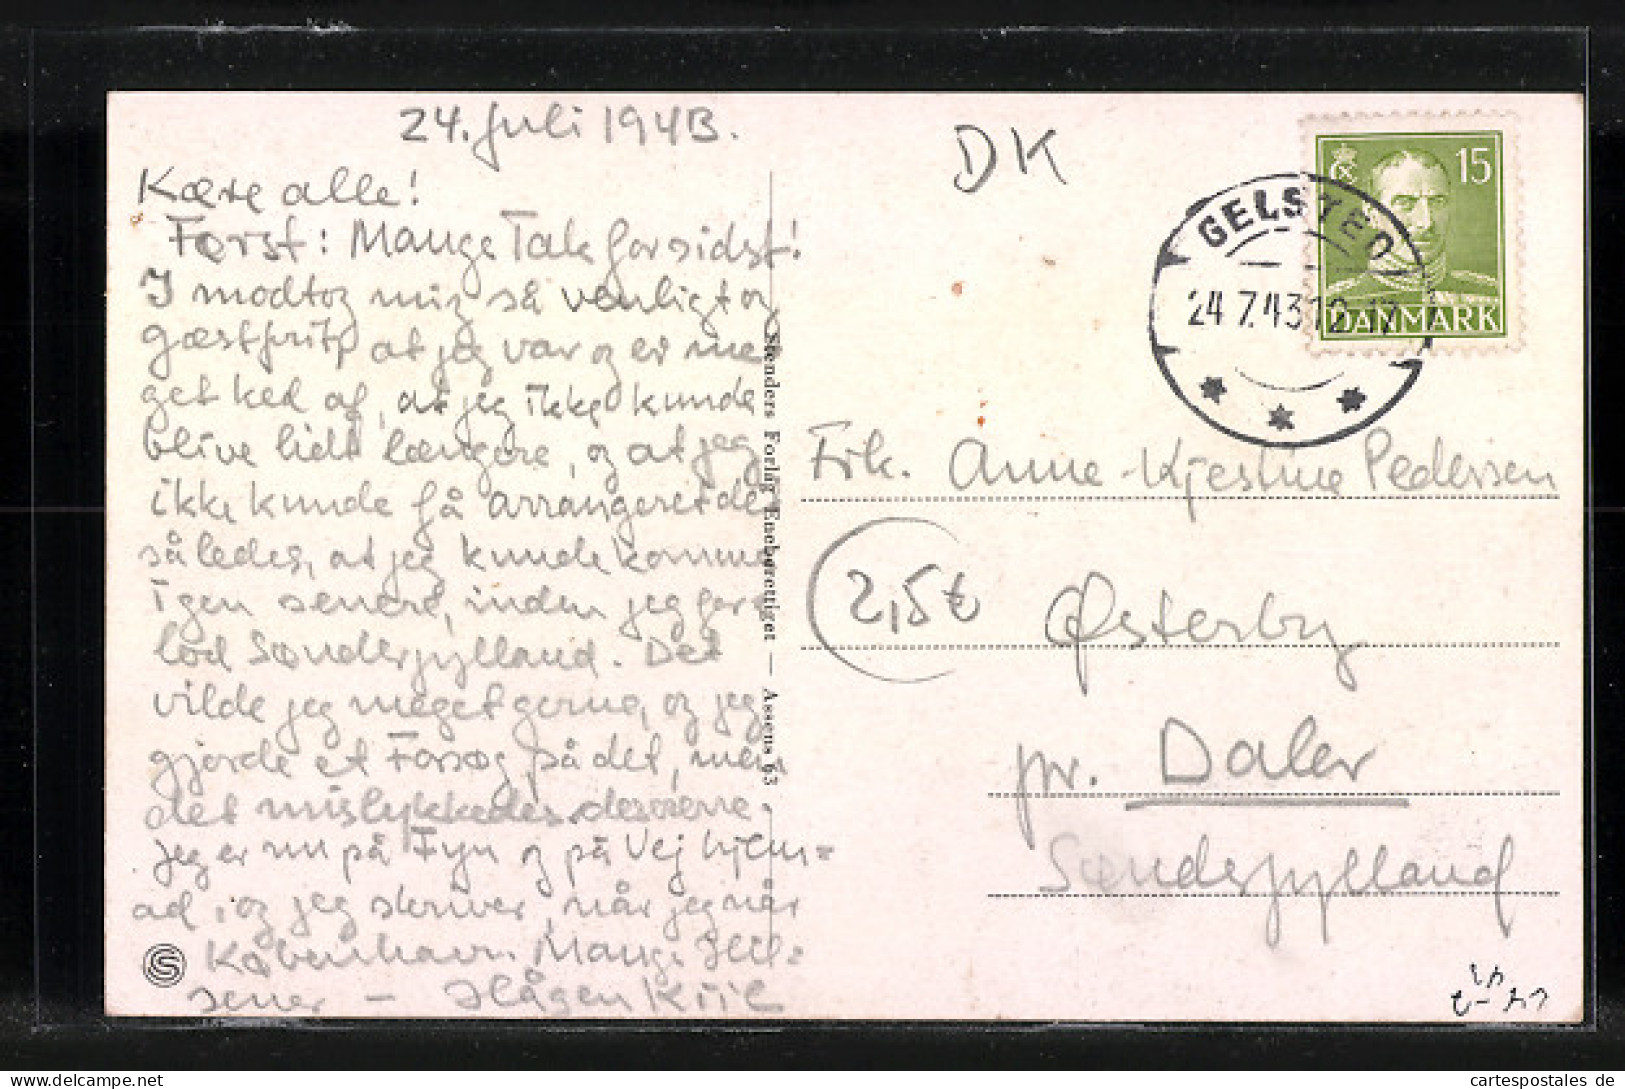 24. Juli 1943.
Kære alle!
Først: Mange Tak for sidst!
I modtog mig så venligt og
gæstfrit, at jeg var og er me
get ked af, at jeg ikke kunde
blive lidt længere, og at jeg
ikke kunde få arrangeret det
således, at jeg kunde komme
igen senere, inden jeg for
lod Sønderjylland. Det
vilde jeg meget gerne, og jeg
gjorde et Forsøg på det, men
det mislykkedes desværre.
Jeg er nu på Fyn og på Vej hjem=
ad, og jeg skriver, når jeg når
København. Mange Hil=
sener –
Stenders Forlag Eneberettiget — Assens 63
DK
15
DANMARK
GELSTED
24 7.43 12-17
Frk. Anne-Kjestine Pedersen
2,5€
Østerby
pr. Daler
Sønderjylland
S
cartespostales de